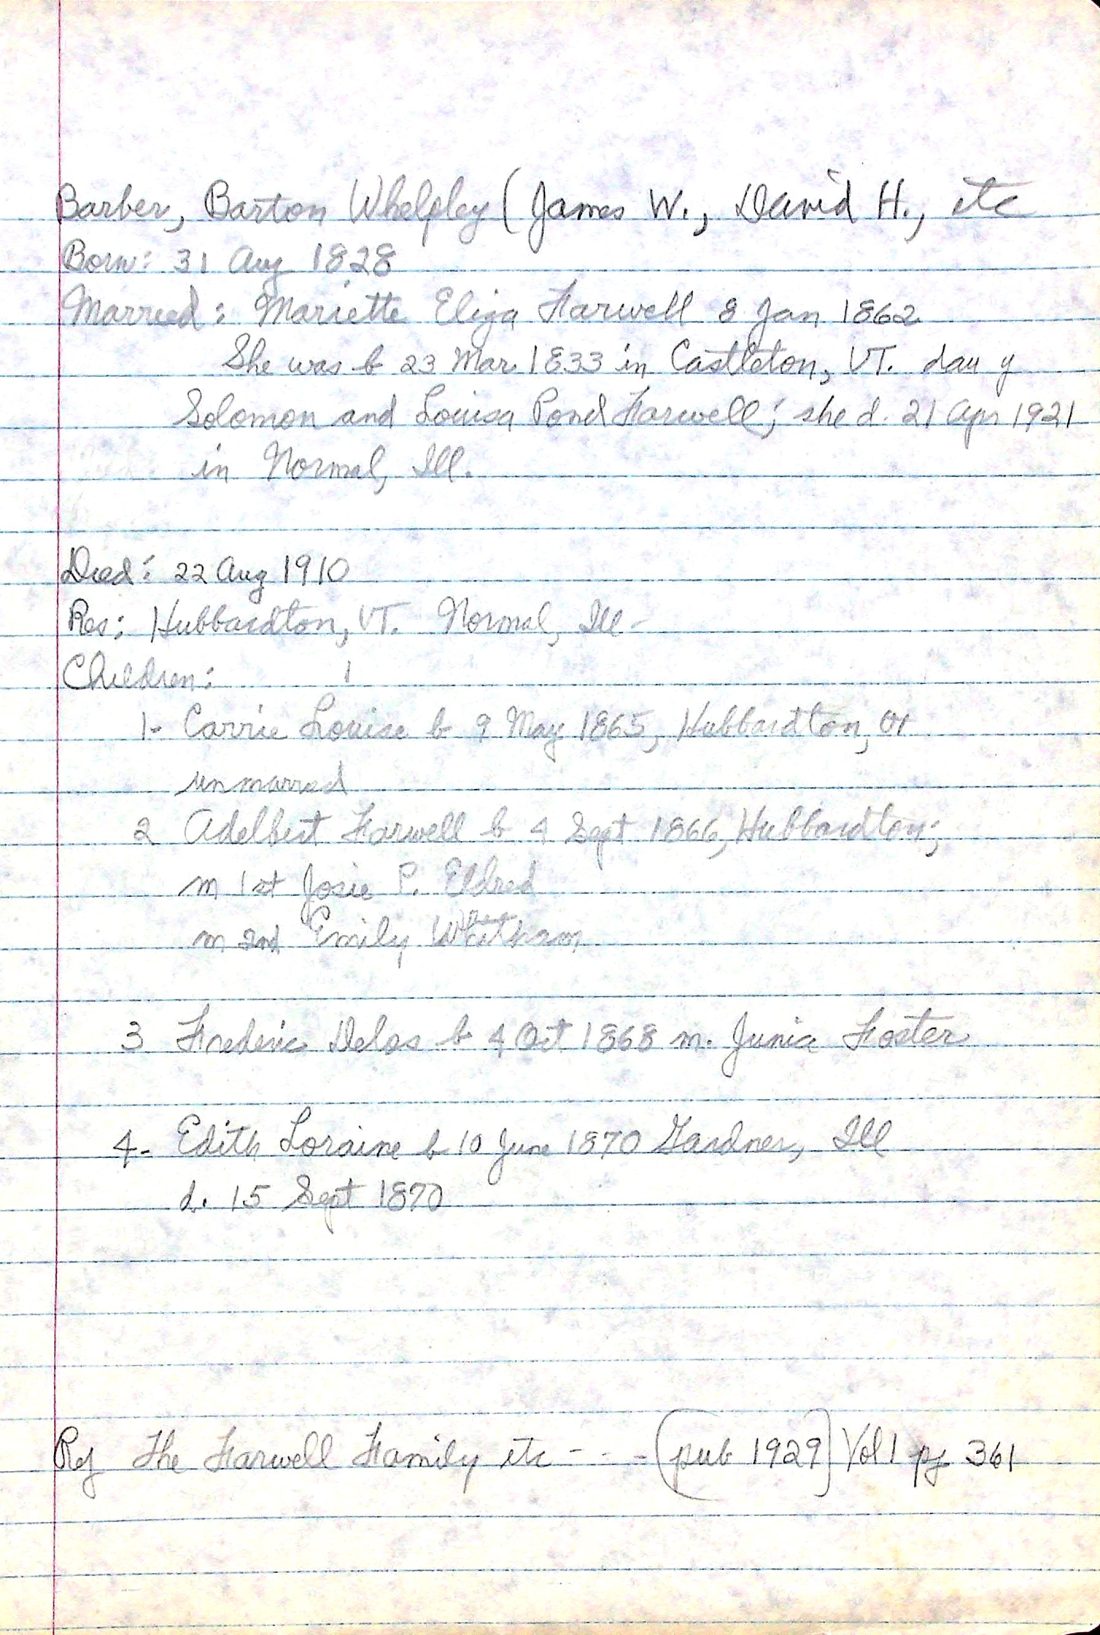 Barber, Barton Whelpley (James W., David H., etc
Born: 31 Aug 1828
Married: Mariette Eliza Farwell 8 Jan 1862
She was b 23 Mar. 1833 in Castleton, VT. dau of
Solomon and Louisa Pond Farwell; she d. 21 Apr 1921
in Normal, Ill.
Died: 22 Aug 1910
Res: Hubbardton, VT. Normal, Ill-
Children:
1- Carrie Louise b 9 May 1865, Hubbardton, Vt
unmarred
2 Adelbert Farwell b 4 Sept 1866, Hubbardton;
m 1st Josie P. Eldred
m 2nd Emily
3 Frederic Delos b 4 Oct 1868 m. Junia Foster
4- Edith Loraine b 10 June 1870 Gardner, Ill
d. 15 Sept 1870
Ref The Farwell Family etc - - - - (pub 1929) Vol 1 pg 361